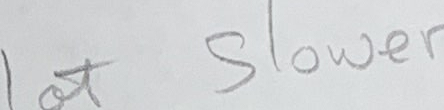 lot slower